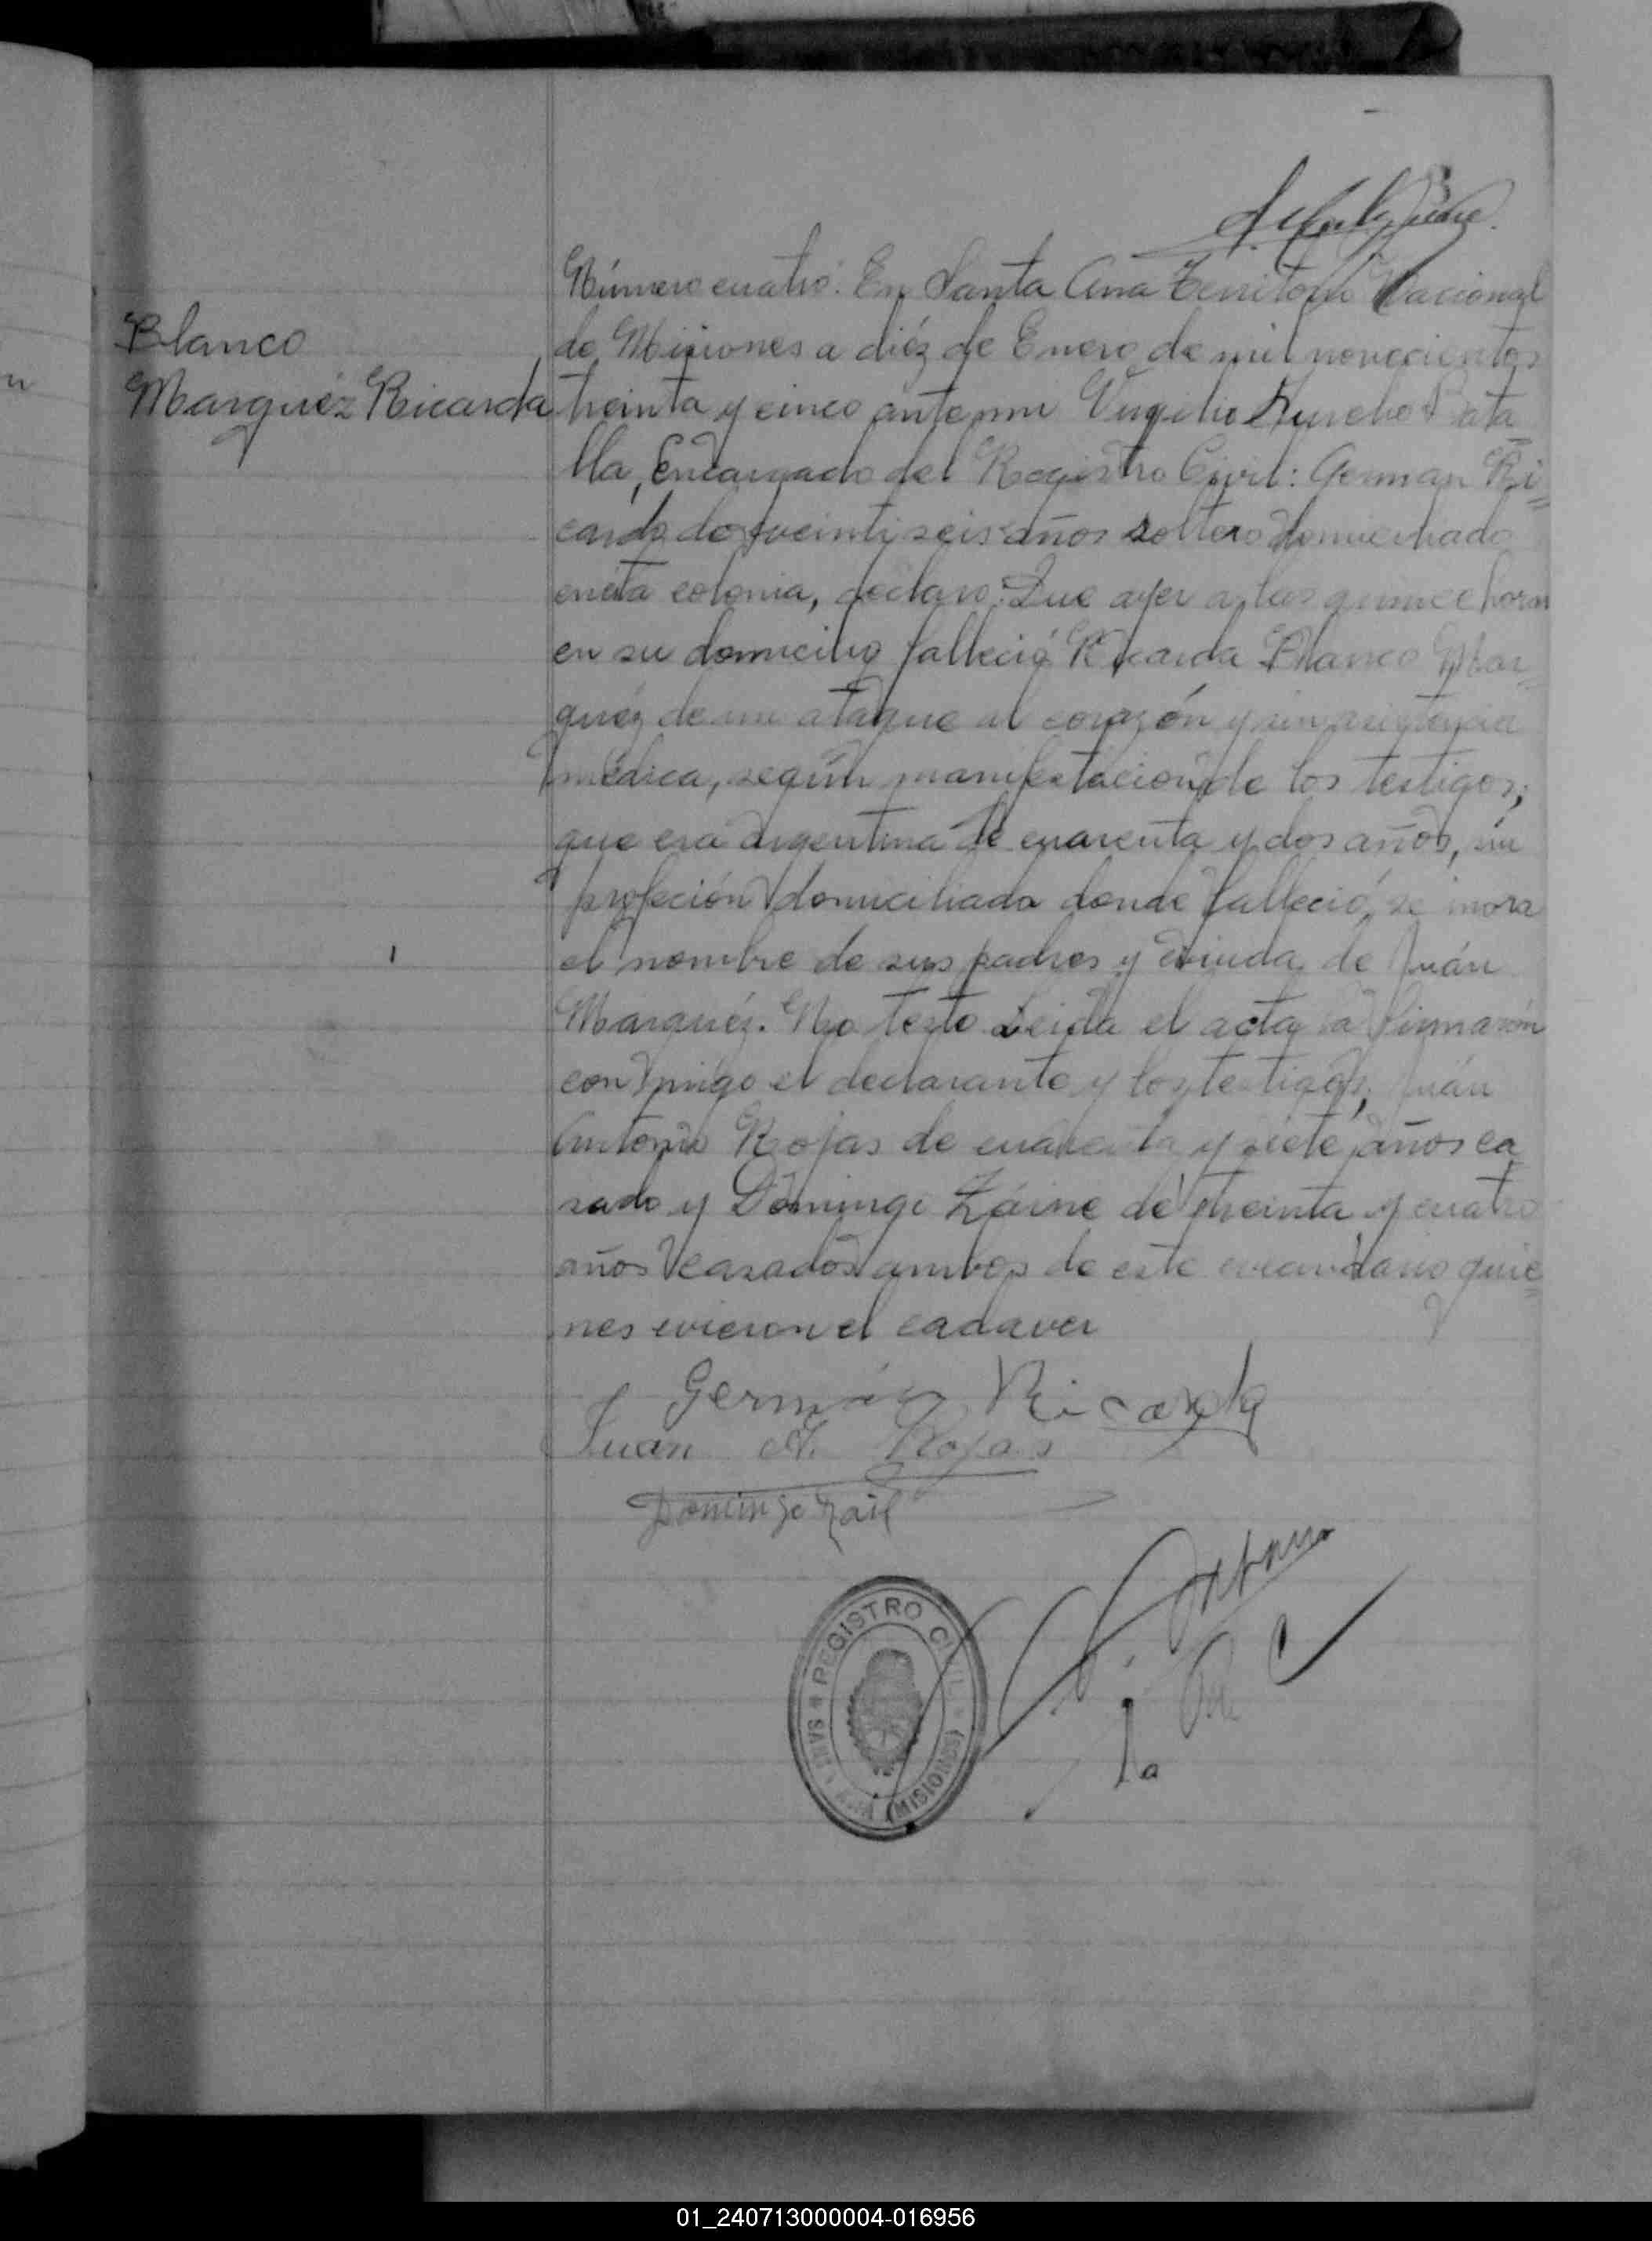 Blanco
Marquéz Ricarda
Número cuatro: En Santa Ana Territorio Nacional
de Misiones a diéz de Enero de mil novecientos
treinta y cinco ante mi Virgilio Aurelio Bata
lla, Encargado del Registro Civil: German Ri=
cardo de veinti seis años soltero domiciliado
en esta colonia, declaro: Que ayer a las quince horas
en su domicilio falleció Ricarda Blanco Mar=
quéz de un ataque al corazón y sin asistencia
médica, según manifestación de los testigos;
que era argentina de cuarenta y dos años, sin
profeción domiciliada donde falleció, se inora
el nombre de sus padres y viuda de Juán
Marquéz. No testo Leida el acta la firmarón
con migo el declarante y los testigos; Juán
Antonio Rojas de cuarenta y siete años ca
sado y Domingo Záine de treinta y cuatro
años casados ambos de este vecindario quie=
nes vieron el cadaver
Germán Ricardo
Juan A. Rojas
Domingo Zail
REGISTRO CIVIL
SANTA ANA (MISIONES)
01_240713000004-016956